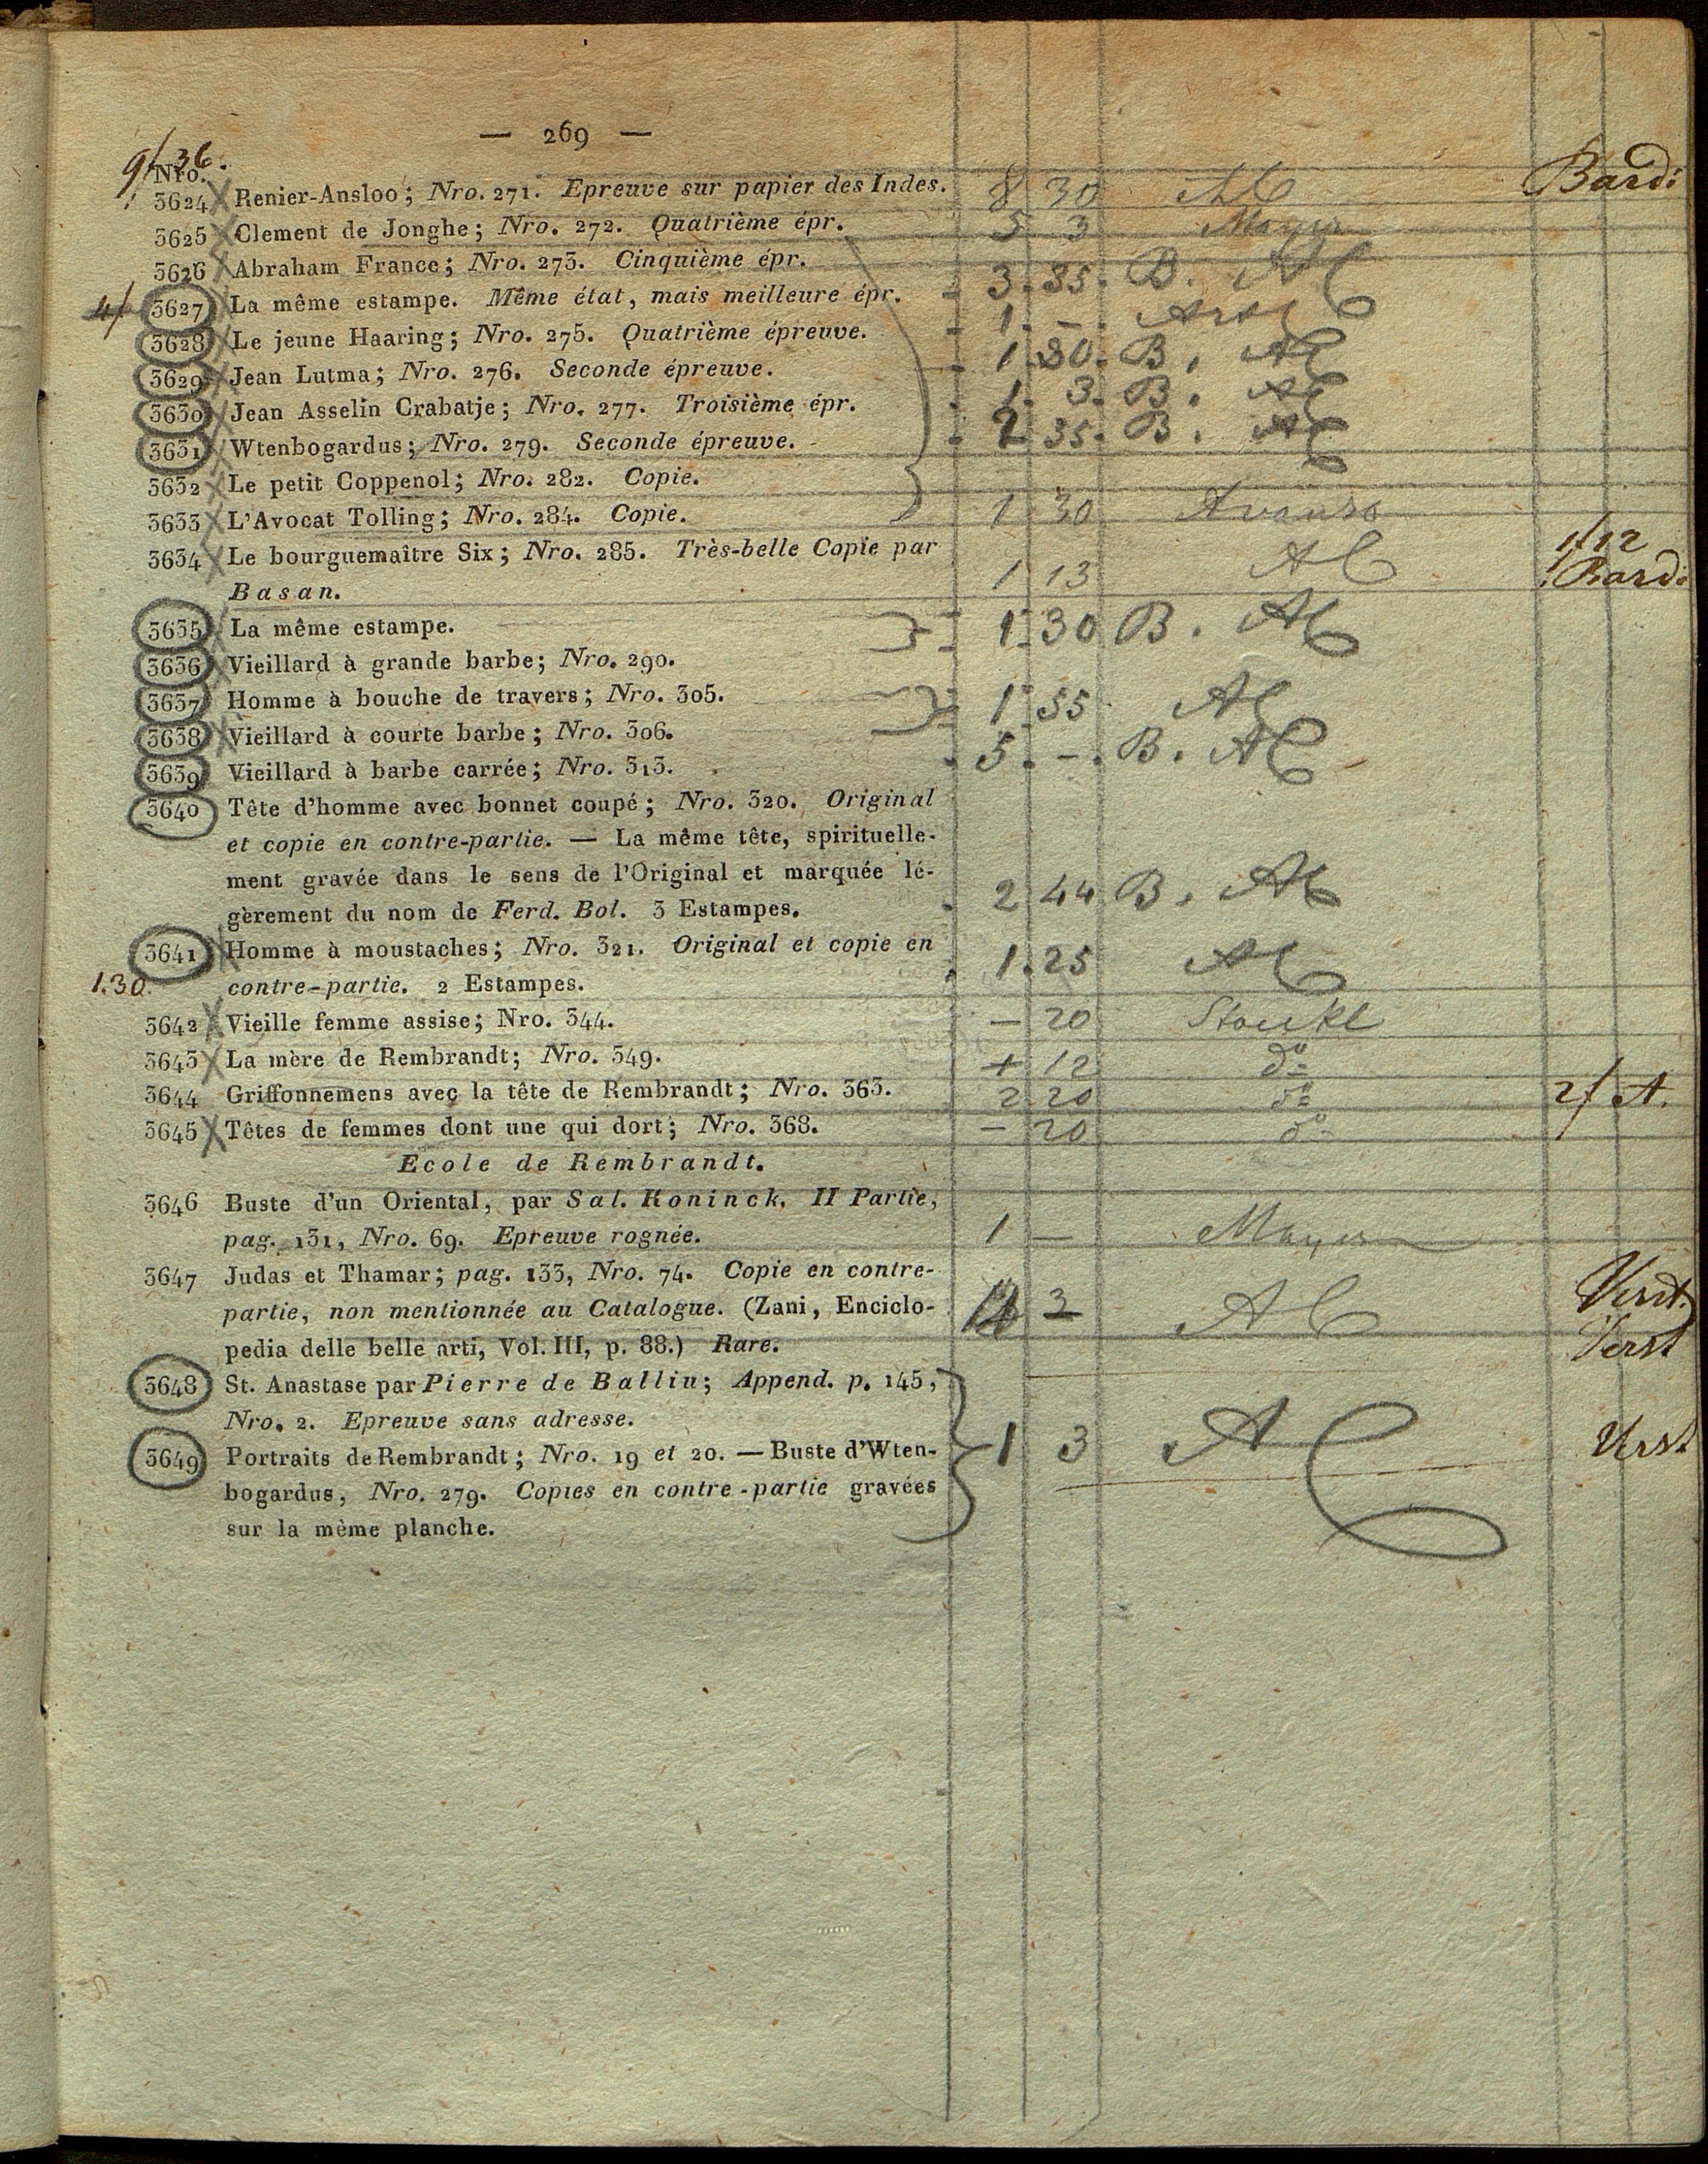 — 269 —
9/36.
Nro.
3624 Renier-Ansloo; Nro. 271. Epreuve sur papier des Indes. 8 30 AC Bardi
3625 Clement de Jonghe; Nro. 272. Quatrième épr. 5 3 Mayer
3626 Abraham France; Nro. 273. Cinquième épr. 3. 35. B. AC
4/ 3627 La même estampe. Même état, mais meilleure épr. 1. -.
3628 Le jeune Haaring; Nro. 275. Quatrième épreuve. 1. 30. B. AC
3629 Jean Lutma; Nro. 276. Seconde épreuve. 1. 3. B. AC
3630 Jean Asselin Crabatje; Nro. 277. Troisième épr. 2 35. B. AC
3631 Wtenbogardus; Nro. 279. Seconde épreuve.
3632 Le petit Coppenol; Nro. 282. Copie.
3633 L'Avocat Tolling; Nro. 284. Copie. 1 30
3634 Le bourguemaître Six; Nro. 285. Très-belle Copie par 1/12
Basan. 1 13 AC Bardi
3635 La même estampe. 1 30 B. AC
3636 Vieillard à grande barbe; Nro. 290.
3637 Homme à bouche de travers; Nro. 305. 1 55 AC
3638 Vieillard à courte barbe; Nro. 306.
3639 Vieillard à barbe carrée; Nro. 313. 5. -. B. AC
3640 Tête d'homme avec bonnet coupé; Nro. 320. Original
et copie en contre-partie. — La même tête, spirituelle-
ment gravée dans le sens de l'Original et marquée lé-
gèrement du nom de Ferd. Bol. 3 Estampes. 2 44 B. AC
3641 Homme à moustaches; Nro. 321. Original et copie en 1. 25 AC
1.30. contre-partie. 2 Estampes.
3642 Vieille femme assise; Nro. 344. — 20 Stöckl
3643 La mère de Rembrandt; Nro. 349. 12 do
3644 Griffonnemens avec la tête de Rembrandt; Nro. 363. 2 20 do 2/ A.
3645 Têtes de femmes dont une qui dort; Nro. 368. — 20 do
Ecole de Rembrandt.
3646 Buste d'un Oriental, par Sal. Koninck. II Partie,
pag. 131, Nro. 69. Epreuve rognée. 1 — Mayer
3647 Judas et Thamar; pag. 133, Nro. 74. Copie en contre-
partie, non mentionnée au Catalogue. (Zani, Enciclo- 3 AC
pedia delle belle arti, Vol. III, p. 88.) Rare. Verst
3648 St. Anastase par Pierre de Balliu; Append. p. 145,
Nro. 2. Epreuve sans adresse.
3649 Portraits de Rembrandt; Nro. 19 et 20. — Buste d'Wten- 1 3 AC Verst
bogardus, Nro. 279. Copies en contre-partie gravées
sur la mème planche.